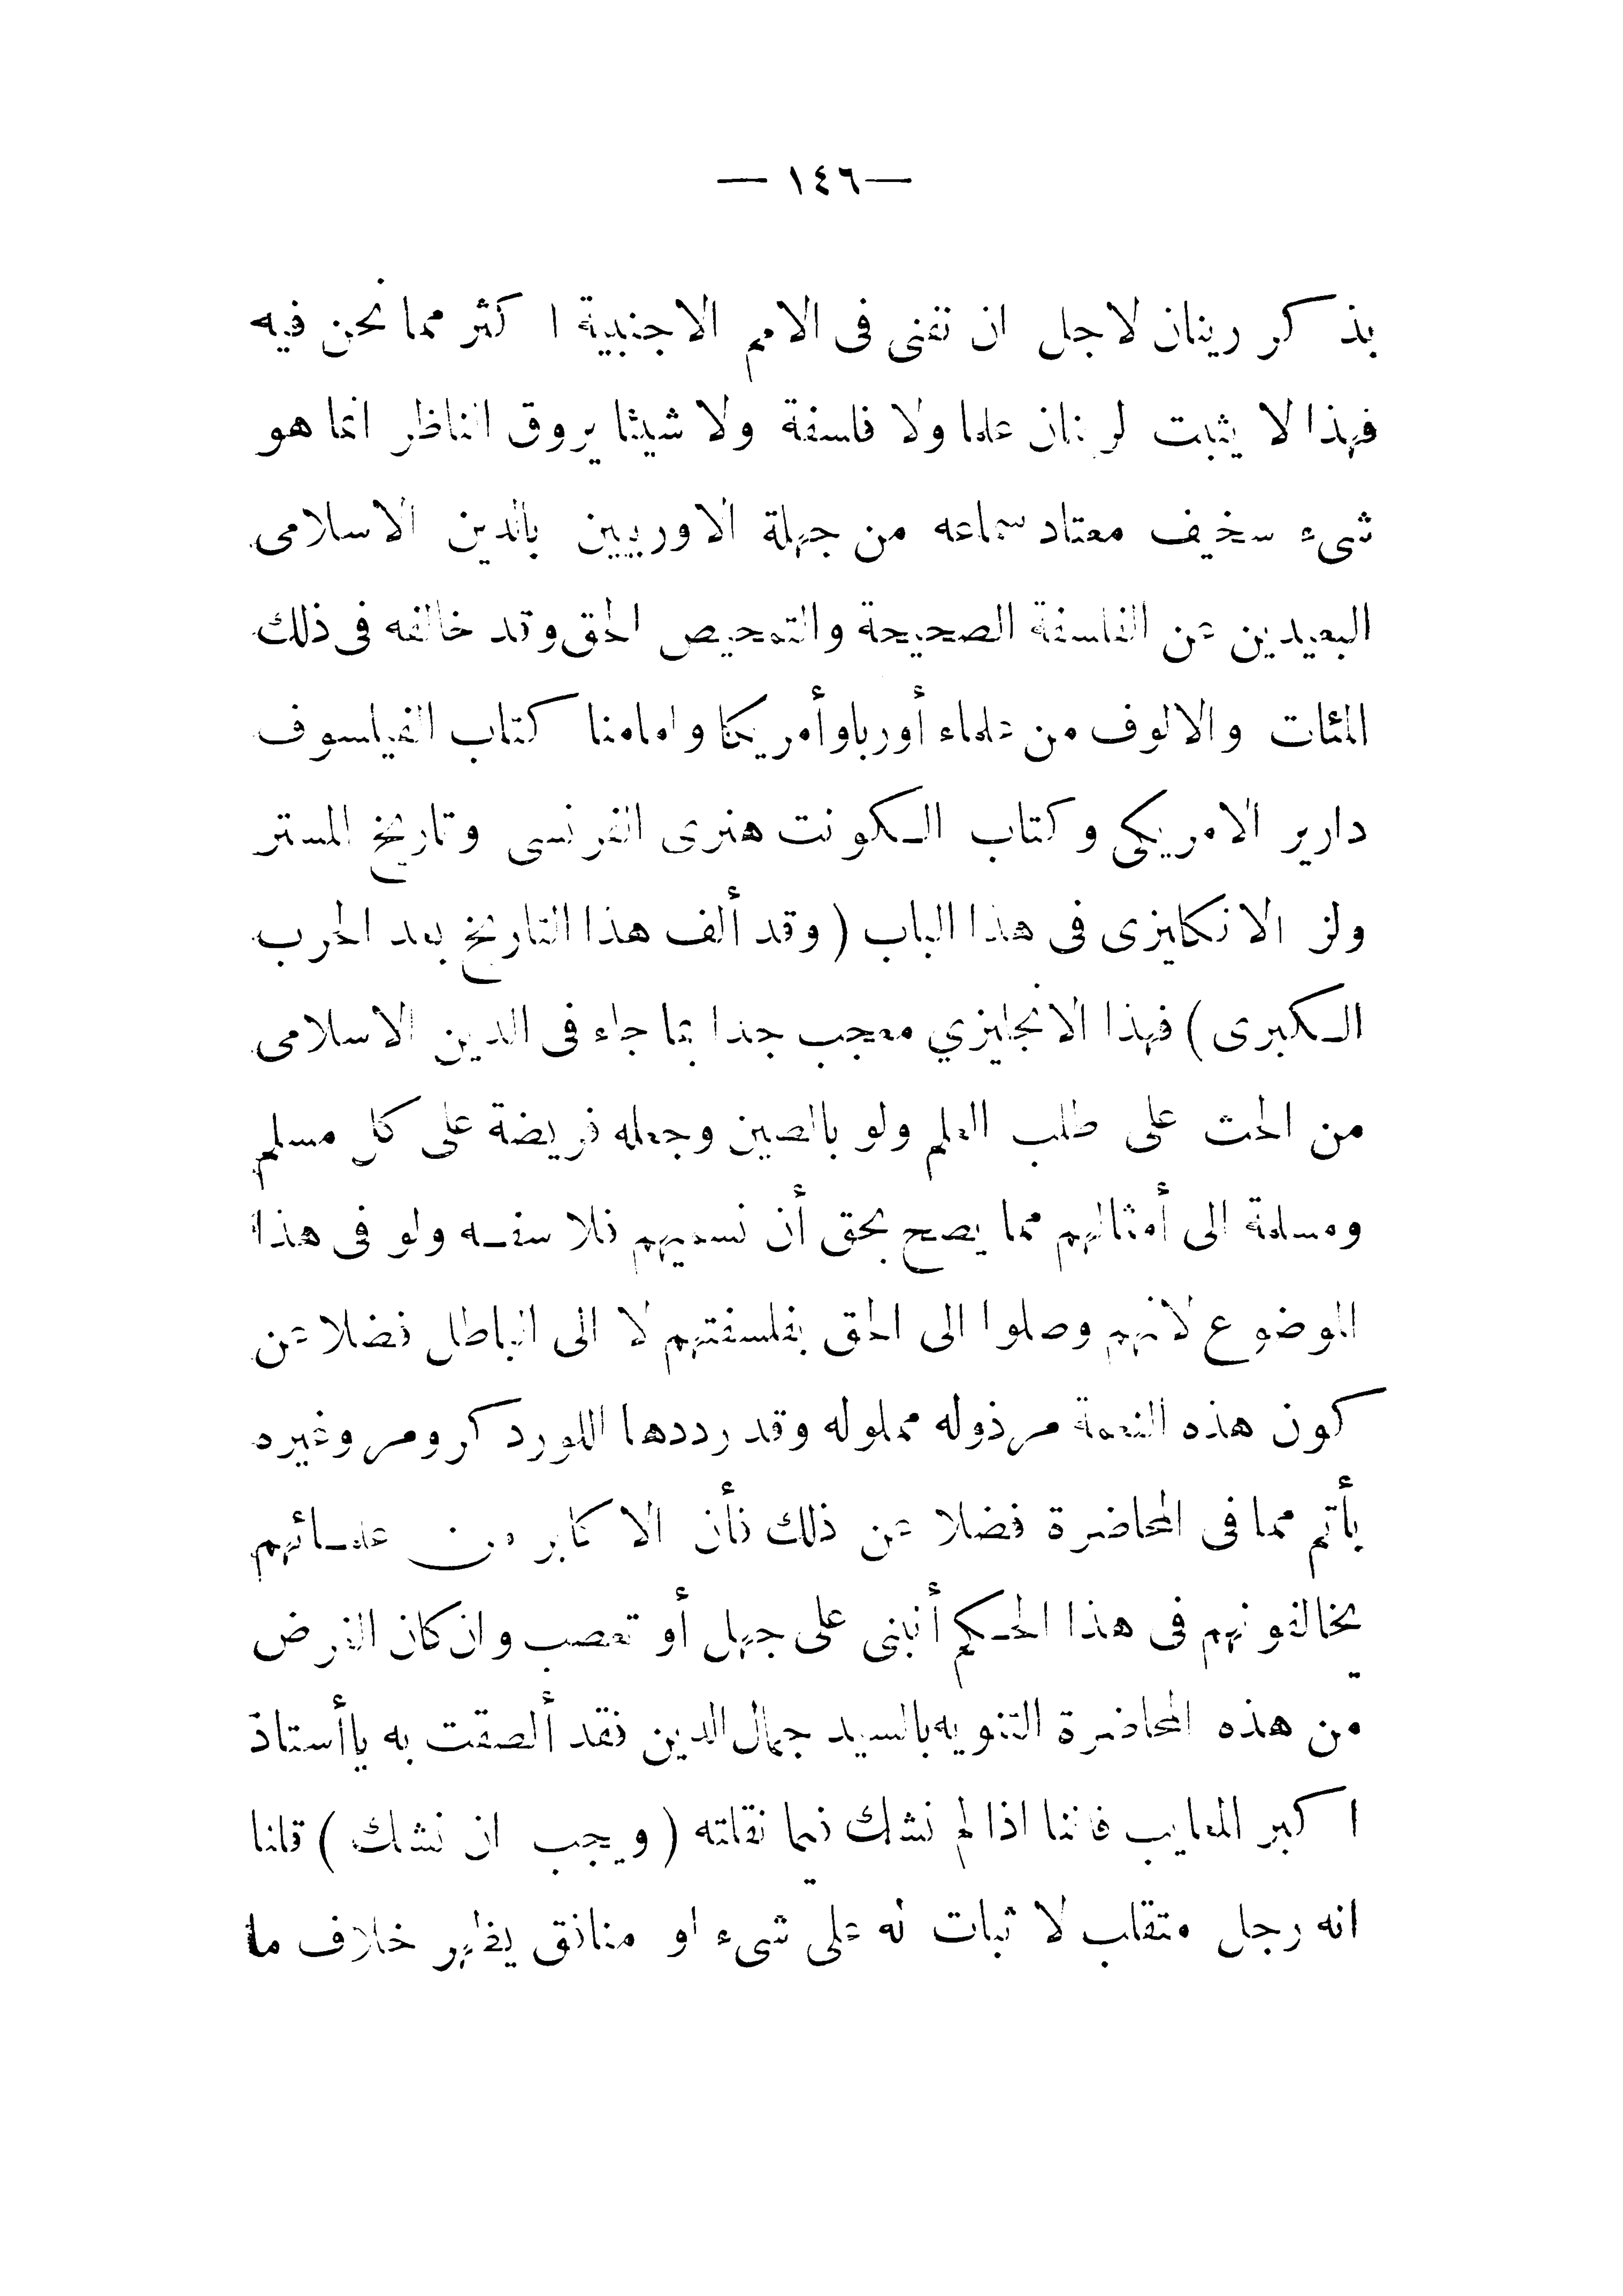 — ١٤٦ —
بذكر رينان لاجل ان تفنى فى الامم الاجنبية اكثر مما نحن فيه
فهذا لا يثبت لرينان علما ولا فلسفة ولا شيئا يروق الناظر انما هو
شىء سخيف معتاد سماعه من جهلة الاوربيين بالدين الاسلامى
البعيدين عن الفلسفة الصحيحة والتمحيص الحق وقد خالفه فى ذلك
المئات والالوف من علماء أوربا وأمريكا وامامنا كتاب الفيلسوف
دارير الامريكى وكتاب الكونت هنرى الفرنسى وتاريخ المستر
ولز الانكليزى فى هذا الباب (وقد ألف هذا التاريخ بعد الحرب
الكبرى) فهذا الانجليزي معجب جدا بما جاء فى الدين الاسلامى
من الحث على طلب العلم ولو بالصين وجعله فريضة على كل مسلم
ومسلمة الى أمثالهم مما يصح بحق أن نسميهم فلاسفه ولو فى هذا
الموضوع لانهم وصلوا الى الحق بفلسفتهم لا الى الباطل فضلا عن
كون هذه النغمة مرذوله مملوله وقد رددها اللورد كرومر وغيره
بأتم مما فى المحاضرة فضلا عن ذلك فأن الاكابر من علمائهم
يخالفونهم فى هذا الحكم أنبنى على جهل أو تعصب وان كان الغرض
من هذه المحاضرة التنويه بالسيد جمال الدين فقد ألصقت به ياأستاذ
اكبر المعايب فاننا اذا لم نشك فيما نقلته (ويجب ان نشك) قلنا
انه رجل متقلب لا ثبات له على شىء او منافق يظهر خلاف ما